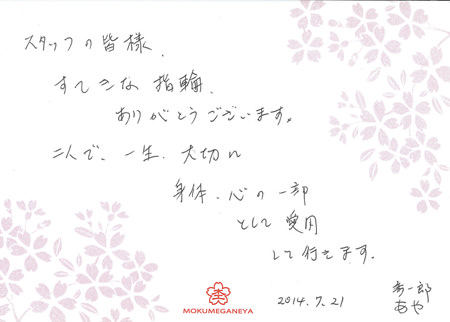 スタッフの皆様、
すてきな指輪、
ありがとうございます。
二人で、一生、大切に
身体、心の一部
として愛用
して行きます。
秀一郎
あや
2014.7.21
MOKUMEGANEYA